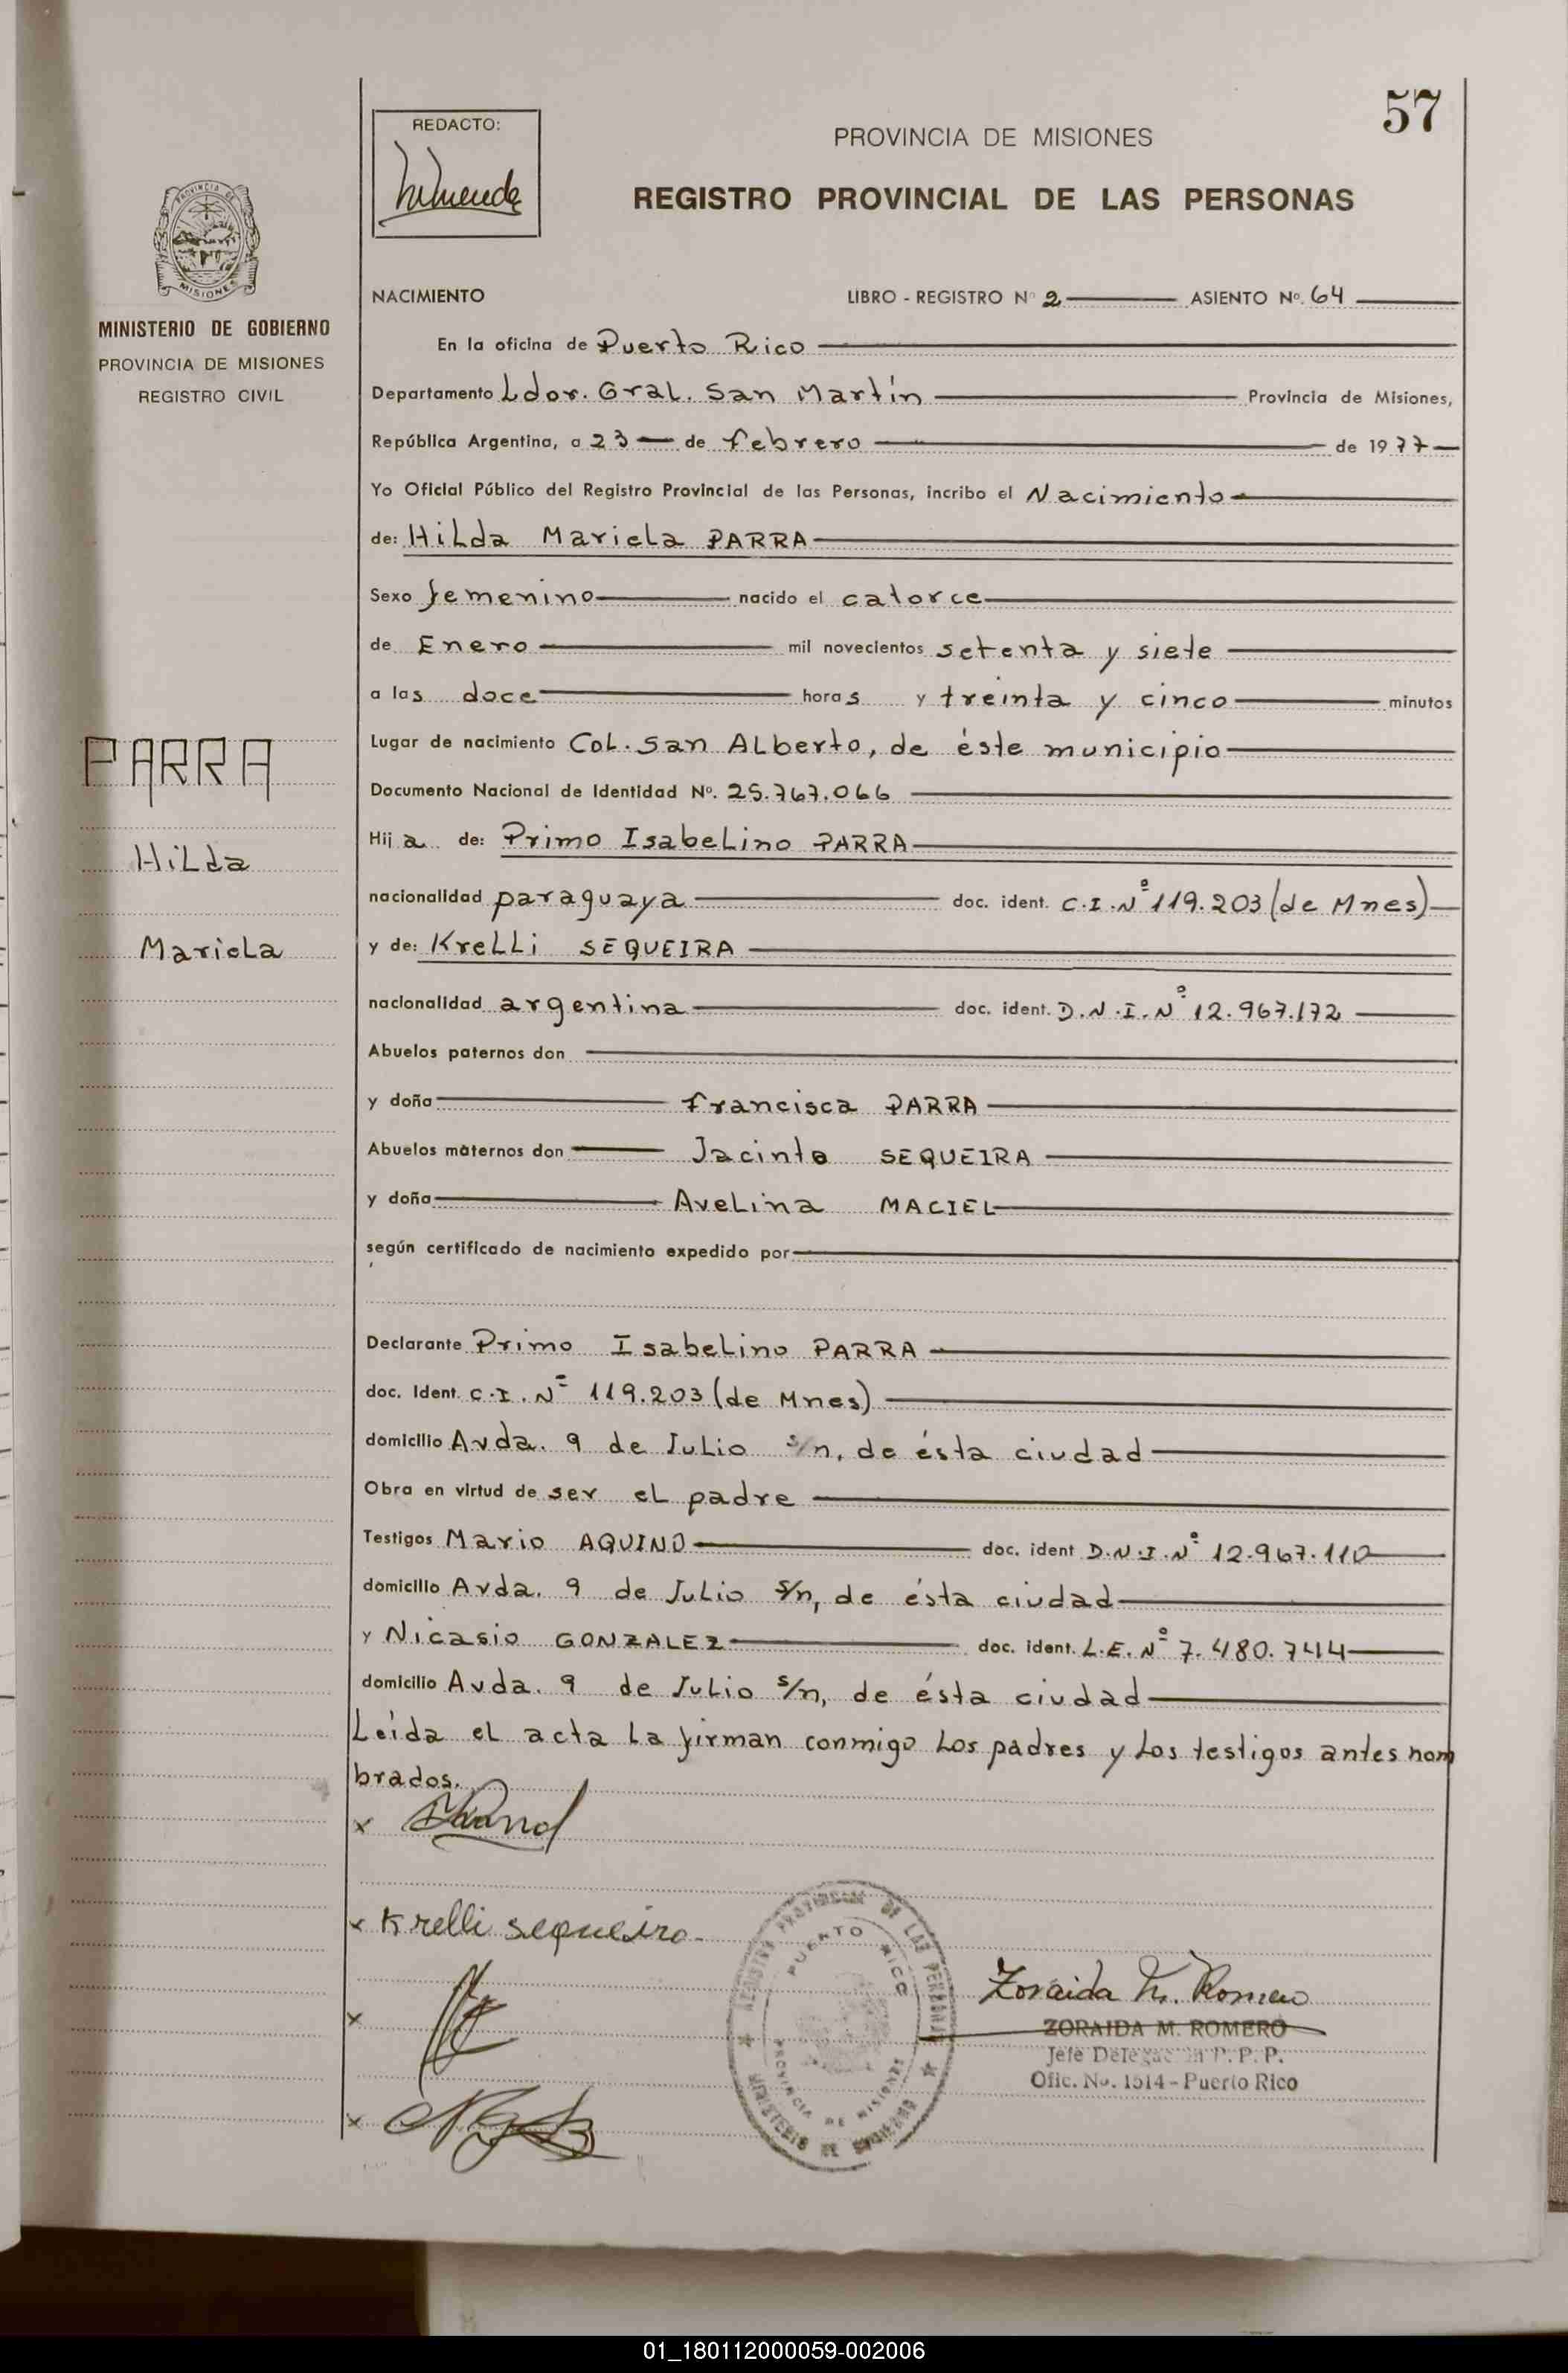 57
REDACTO:
PROVINCIA DE MISIONES
REGISTRO PROVINCIAL DE LAS PERSONAS
PROVINCIA DE
MISIONES
MINISTERIO DE GOBIERNO
PROVINCIA DE MISIONES
REGISTRO CIVIL
NACIMIENTO LIBRO - REGISTRO Nº 2 ASIENTO Nº. 64
En la oficina de Puerto Rico
Departamento Ldor. Gral. San Martín Provincia de Misiones,
República Argentina, a 23 de febrero de 1977
Yo Oficial Público del Registro Provincial de las Personas, incribo el Nacimiento
de: Hilda Mariela PARRA
Sexo femenino nacido el catorce
de Enero mil novecientos setenta y siete
a las doce horas y treinta y cinco minutos
Lugar de nacimiento Col. San Alberto, de éste municipio
Documento Nacional de Identidad Nº. 25.767.066
Hija de: Primo Isabelino PARRA
nacionalidad paraguaya doc. ident. C.I.Nº 119.203 (de Mnes)
y de: Krelli SEQUEIRA
nacionalidad argentina doc. ident. D.N.I.Nº 12.967.172
Abuelos paternos don
y doña Francisca PARRA
Abuelos maternos don Jacinto SEQUEIRA
y doña Avelina MACIEL
según certificado de nacimiento expedido por
Declarante Primo Isabelino PARRA
doc. Ident. C.I.Nº 119.203 (de Mnes)
domicilio Avda. 9 de Julio s/n, de ésta ciudad
Obra en virtud de ser el padre
Testigos Mario AQUINO doc. ident D.N.I.Nº 12.967.110
domicilio Avda. 9 de Julio s/n, de ésta ciudad
y Nicasio GONZALEZ doc. ident. L.E.Nº 7.480.744
domicilio Avda. 9 de Julio s/n, de ésta ciudad
Leída el acta la firman conmigo los padres y los testigos antes nom
brados.
PARRA
Hilda
Mariela
x
x Krelli Sequeira
x
x
REGISTRO PROVINCIAL DE LAS PERSONAS
PUERTO RICO
PROVINCIA DE MISIONES
MINISTERIO DE GOBIERNO
Zoraida M. Romero
ZORAIDA M. ROMERO
Jefe Delegación P. P. P.
Ofic. No. 1514 - Puerto Rico
01_180112000059-002006